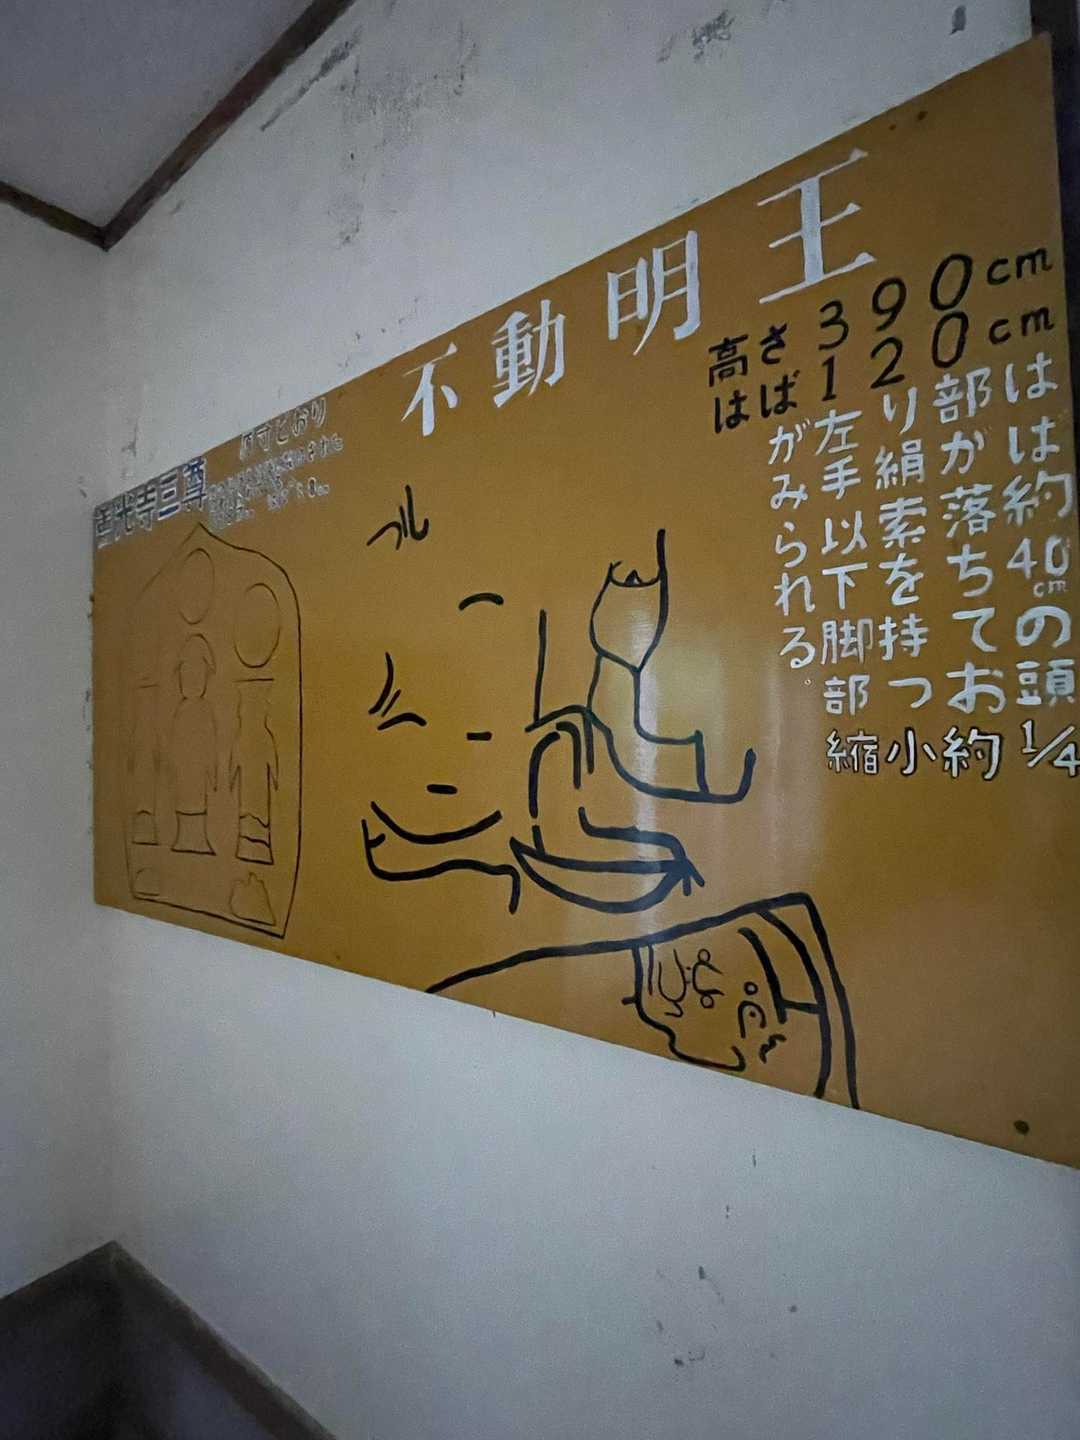 不動明王
高さ390cm
はば120cm
はは約40cmの頭
部が落ちてお
り絹索を持つ
左手以下脚部
がみられる。
縮小約1/4
善光寺三尊